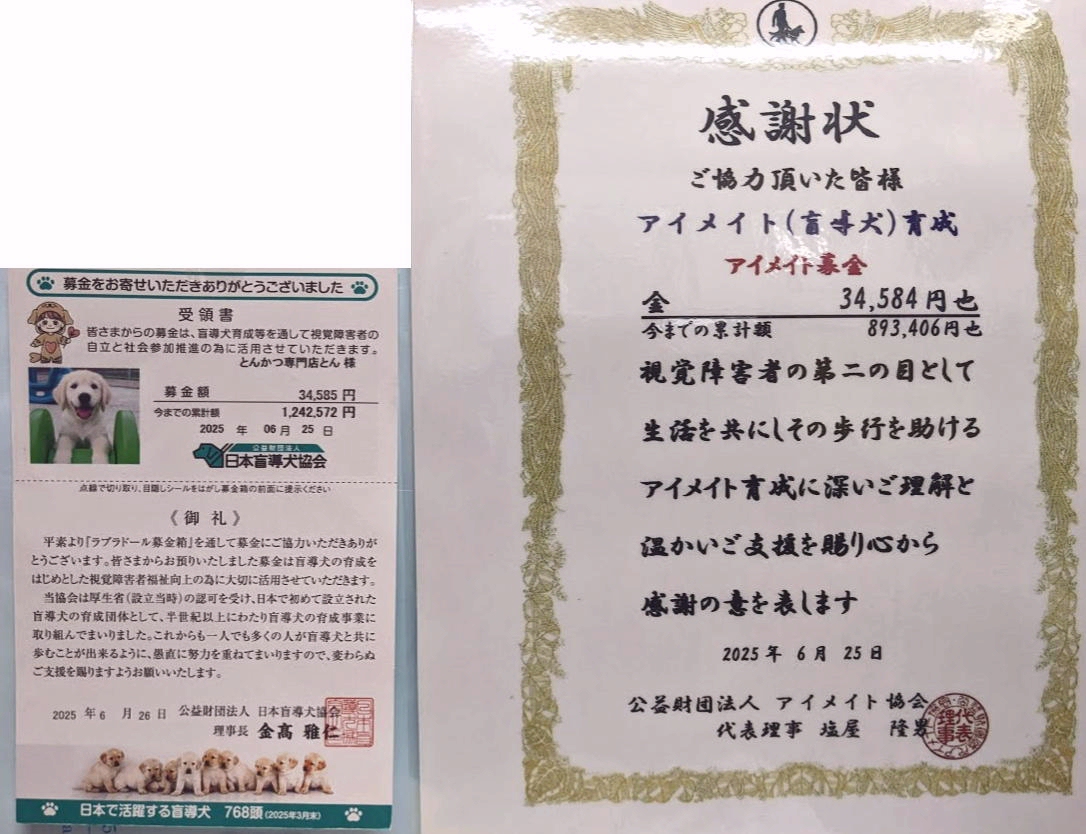 募金をお寄せいただきありがとうございました
受領書
皆さまからの募金は、盲導犬育成等を通して視覚障害者の
自立と社会参加推進の為に活用させていただきます。
とんかつ専門店とん 様
募金額 34,585 円
今までの累計額 1,242,572 円
2025 年 06 月 25 日
公益財団法人
日本盲導犬協会
点線で切り取り、目隠しシールをはがし募金箱の前面に提示ください
《御礼》
平素より「ラブラドール募金箱」を通して募金にご協力いただきありが
とうございます。皆さまからお預りいたしました募金は盲導犬の育成を
はじめとした視覚障害者福祉向上の為に大切に活用させていただきます。
当協会は厚生省(設立当時)の認可を受け、日本で初めて設立された
盲導犬の育成団体として、半世紀以上にわたり盲導犬の育成事業に
取り組んでまいりました。これからも一人でも多くの人が盲導犬と共に
歩むことが出来るように、愚直に努力を重ねてまいりますので、変わらぬ
ご支援を賜りますようお願いいたします。
2025 年 6 月 26 日 公益財団法人 日本盲導犬協会
理事長 金高 雅仁
日本で活躍する盲導犬 768頭(2025年3月末)
感謝状
ご協力頂いた皆様
アイメイト(盲導犬)育成
アイメイト募金
金 34,584円也
今までの累計額 893,406円也
視覚障害者の第二の目として
生活を共にしその歩行を助ける
アイメイト育成に深いご理解と
温かいご支援を賜り心から
感謝の意を表します
2025年 6月 25日
公益財団法人 アイメイト協会
代表理事 塩屋 隆男